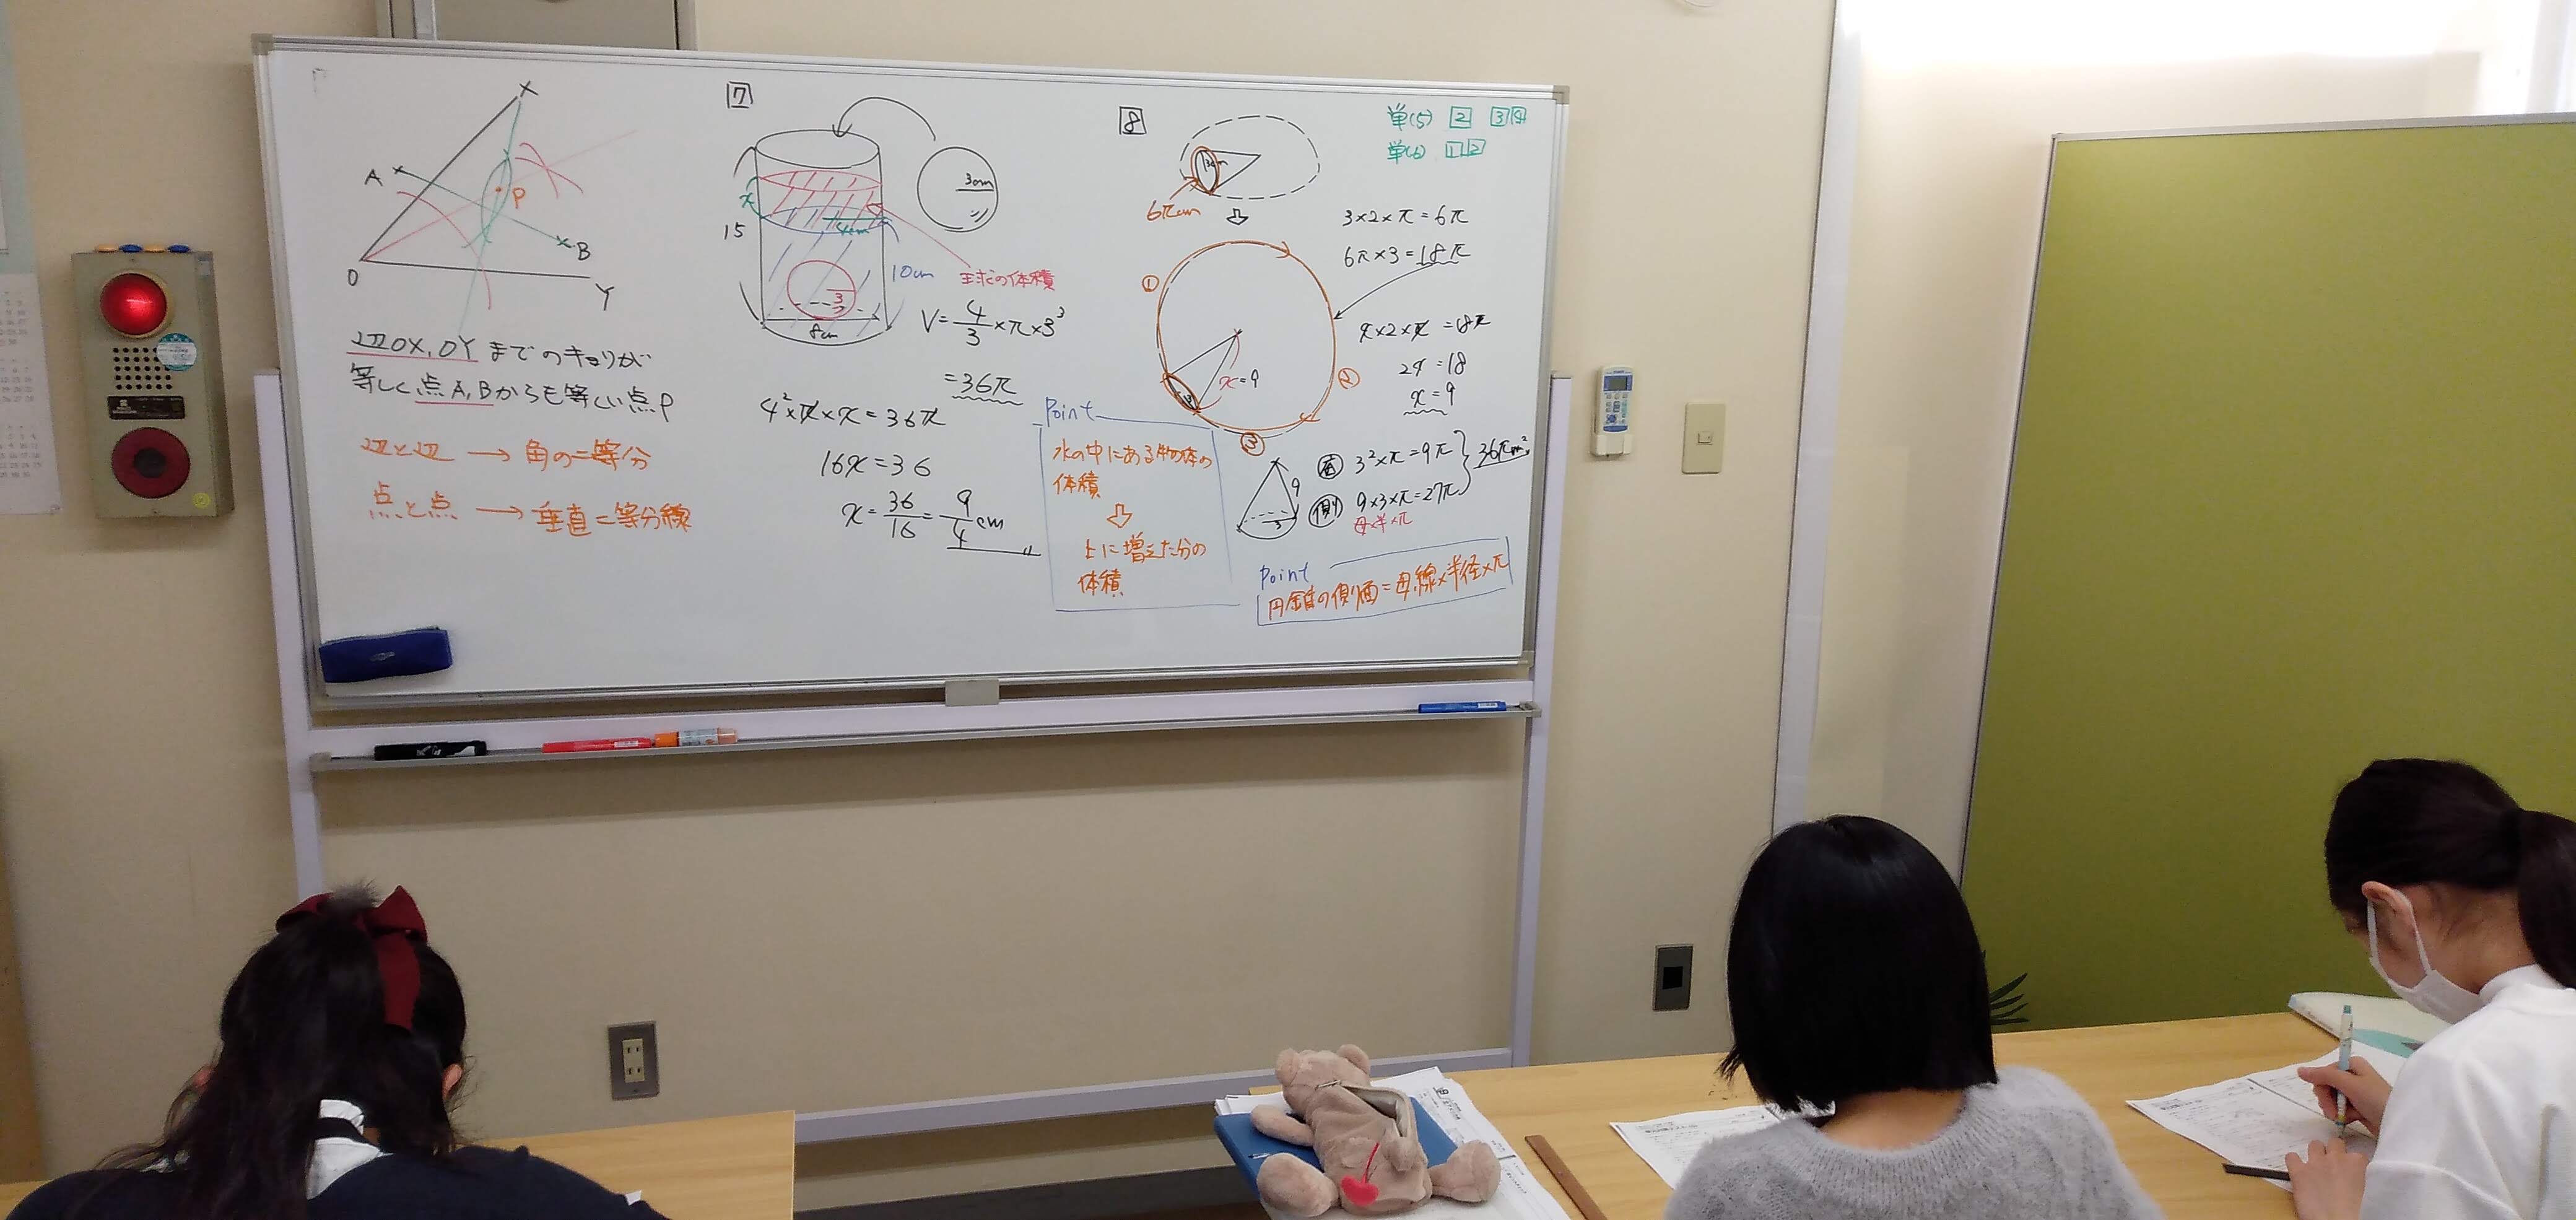 X
A
P
B
O
Y
辺OX, OYまでのキョリが
等しく点A, Bからも等しい点P
辺と辺 → 角の二等分
点と点 → 垂直二等分線
7
3cm
x
4cm
15
10cm
3
8cm
球の体積
V=4/3×π×3³
=36π
4²×π×x=36π
16x=36
x=36/16=9/4cm
Point
水の中にある物体の
体積
⇩
上に増えた分の
体積
8
3cm
6πcm
⇩
3×2×π=6π
6π×3=18π
①
②
③
x=9
x×2×π=18π
2x=18
x=9
9
3
底 3²×π=9π
側 9×3×π=27π
36πcm²
母×半×π
Point
円錐の側面=母線×半径×π
単(5) 2 3 4
単(6) 1 2